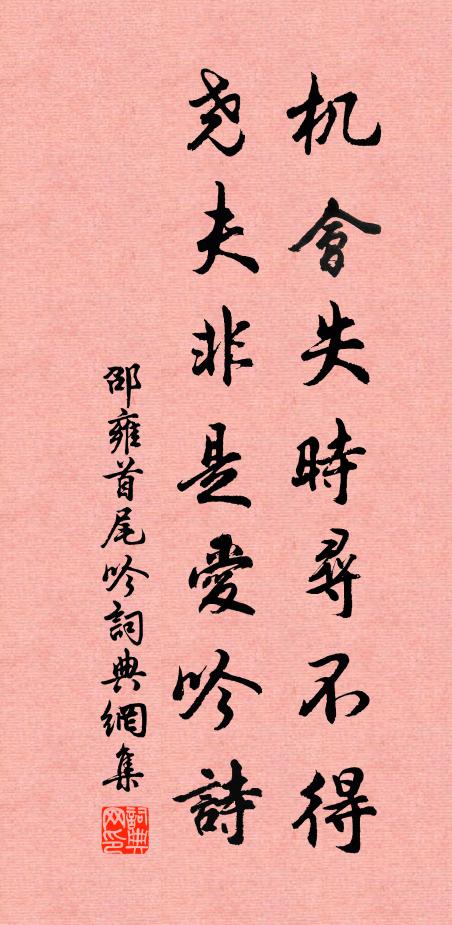 机會失時尋不得
尧夫非是愛吟詩
邵雍首尾吟詞典網集
詞典网印